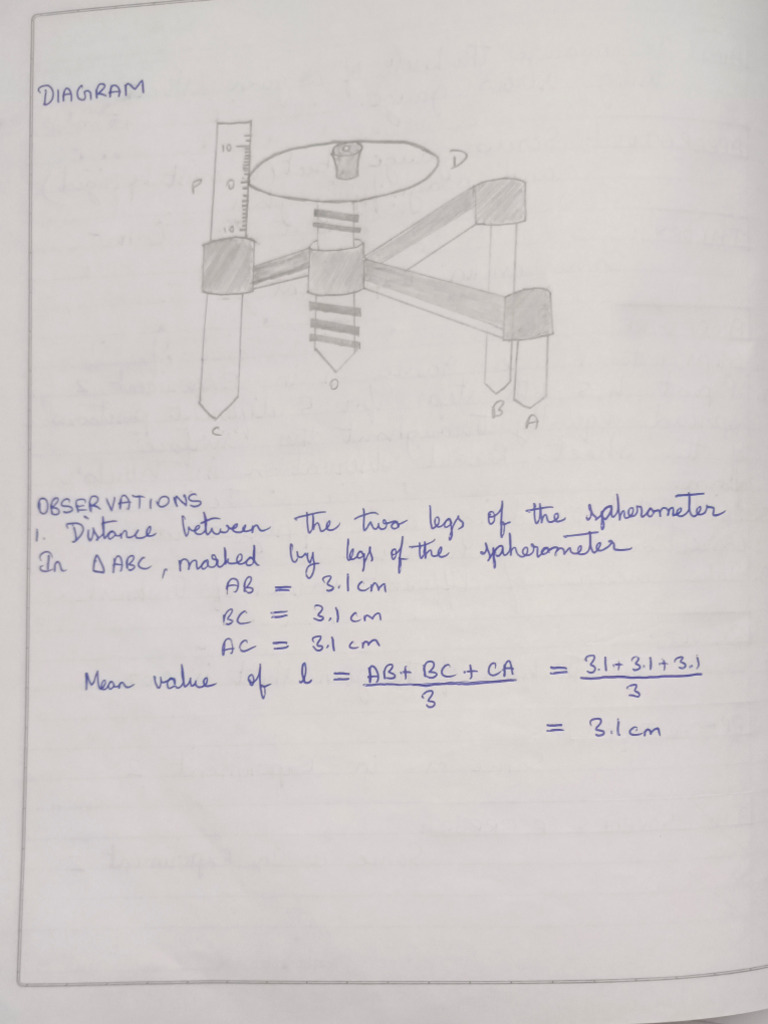 DIAGRAM
10
D
P
0
10
O
B
A
C
OBSERVATIONS
1. Distance between the two legs of the spherometer
In ΔABC, marked by legs of the spherometer
AB = 3.1 cm
BC = 3.1 cm
AC = 3.1 cm
Mean value of l = AB + BC + CA / 3 = 3.1 + 3.1 + 3.1 / 3
= 3.1 cm